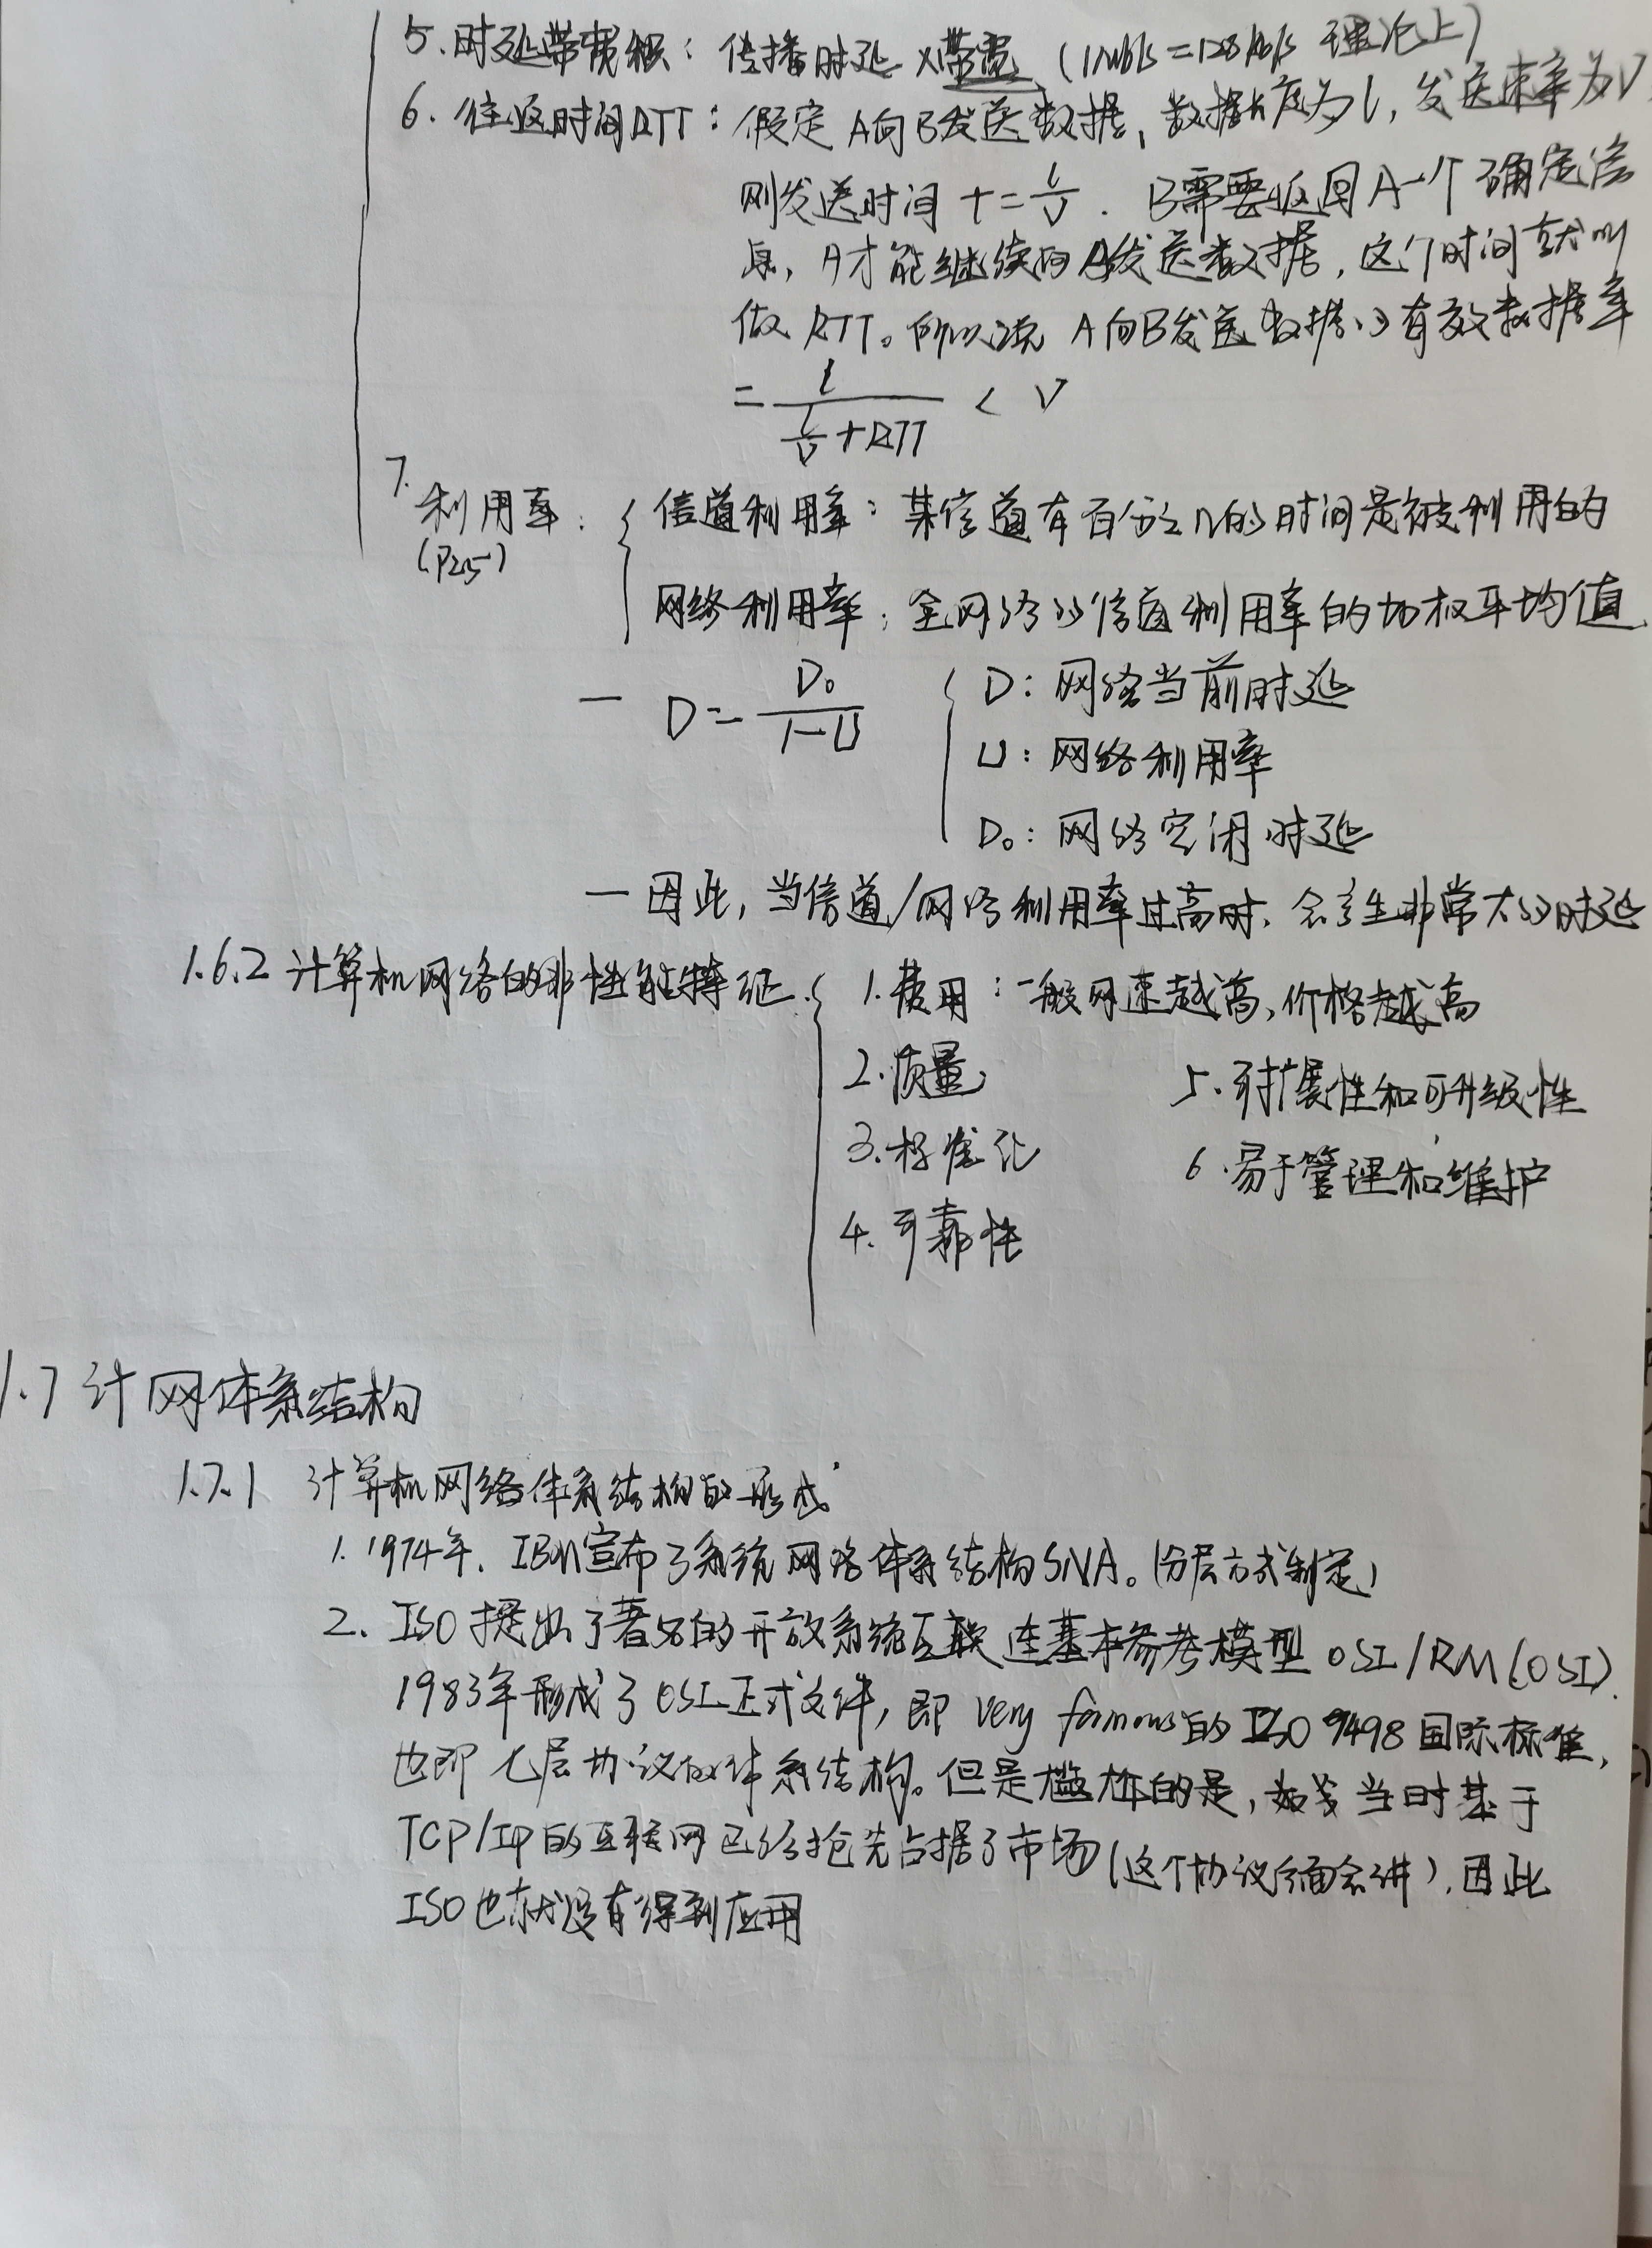 5. 时延带宽积：传播时延 × 带宽 (1Mb/s = 128kb/s 理论上)
6. 往返时间RTT：假定A向B发送数据，数据长度为l，发送速率为V
则发送时间 t = l/v . B需要返回A一个确定信
息，A才能继续向B发送数据，这个时间就叫
做 RTT。所以说 A向B发送数据的有效数据率
= l / (l/v + RTT) < V
7. 利用率：{ 信道利用率：某信道有百分之n的时间是被利用的
(P25)
网络利用率：全网络的信道利用率的加权平均值
— D = D₀ / (1-U) { D：网络当前时延
U：网络利用率
D₀：网络空闲时延
— 因此，当信道/网络利用率过高时，会产生非常大的时延
1.6.2 计算机网络的非性能特征 { 1. 费用：一般网速越高，价格越高
2. 质量 5. 可扩展性和可升级性
3. 标准化 6. 易于管理和维护
4. 可靠性
1.7 计网体系结构
1.7.1 计算机网络体系结构的形成
1. 1974年，IBM宣布了系统网络体系结构SNA。(分层方式制定)
2. ISO 提出了著名的开放系统互联连基本参考模型 OSI/RM (OSI).
1983年形成了OSI正式文件，即 very famous的 ISO 7498 国际标准，
也即 七层协议的体系结构。但是尴尬的是，当时基于
TCP/IP的互联网已经抢先占据了市场(这个协议后面会讲)，因此
ISO也就没有得到应用